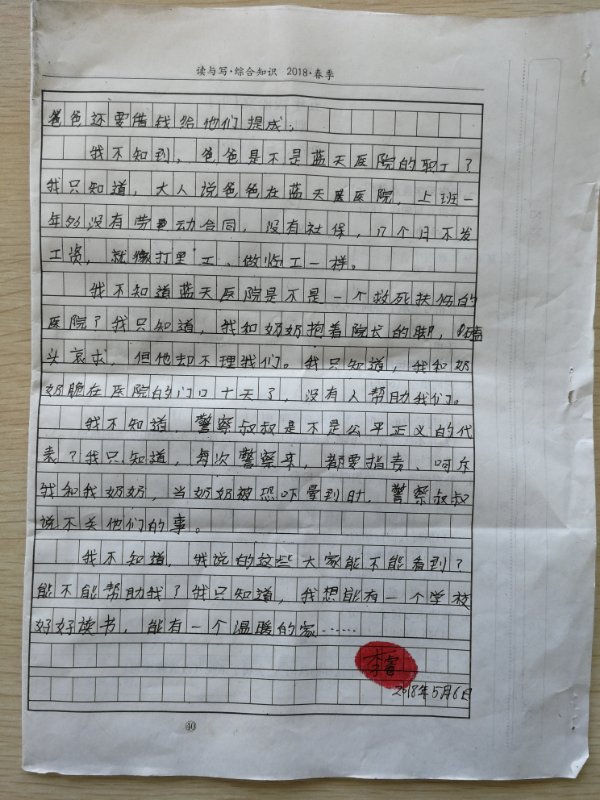 读与写·综合知识 2018·春季
爸爸还要借钱给他们提成;
我不知到,爸爸是不是蓝天医院的职工?
我只知道,大人说爸爸在蓝天医院,上班一
年多没有劳动合同,没有社保,17个月不发
工资,就像打黑工、做临工一样。
我不知道蓝天医院是不是一个救死扶伤的
医院?我只知道,我和奶奶抱着院长的脚,磕
头哀求,但他却不理我们。我只知道,我和奶
奶跪在医院的门口十天了,没有人帮助我们。
我不知道,警察叔叔是不是公平正义的代
表?我只知道,每次警察来,都要指责、呵斥
我和我奶奶,当奶奶被恐吓晕到时,警察叔叔
说不关他们的事。
我不知道,我说的这些大家能不能看到?
能不能帮助我?我只知道,我想能有一个学校
好好读书,能有一个温暖的家……
李睿
2018年5月6日
40